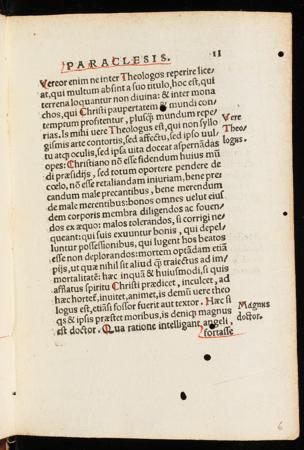 PARACLESIS. 11
Vereor enim ne inter Theologos reperire lice
at, qui multum absint a suo titulo, hoc est, qui
terrena loquantur non diuina: & inter mona
chos, qui Christi paupertatem & mundi con-
temptum profitentur, plusq̃ mundum repe-
rias. Is mihi uere Theologus est, qui non syllo
gismis arte contortis, sed affectu, sed ipso uul-
tu atq; oculis, sed ipsa uita doceat aspernãdas
opes: Christiano nõ esse fidendum huius mũ
di præsidijs, sed totum oportere pendere de
cœlo, nõ esse retaliandam iniuriam, bene pre
candum male precantibus, bene merendum
de male merentibus: bonos omnes uelut eius
dem corporis membra diligendos ac fouen-
dos ex æquo: malos tolerandos, si corrigi ne
queant: qui suis exuuntur bonis, qui depel-
luntur possessionibus, qui lugent hos beatos
esse non deplorandos: mortem optãdam etiã
pijs, ut quæ nihil sit aliud q̃ traiectus ad im-
mortalitatẽ: hæc inquã & huiusmodi, si quis
afflatus spiritu Christi prædicet, inculcet, ad
hæc hortet, inuitet, animet, is demũ uere theo
logus est, etiãsi fossor fuerit aut textor. Hæc si
qs & ipsis præstet moribus, is deniq; magnus
est doctor. Qua ratione intelligant angeli,
fortasse
Vere
Theo-
logus.
Magnus
doctor.
6